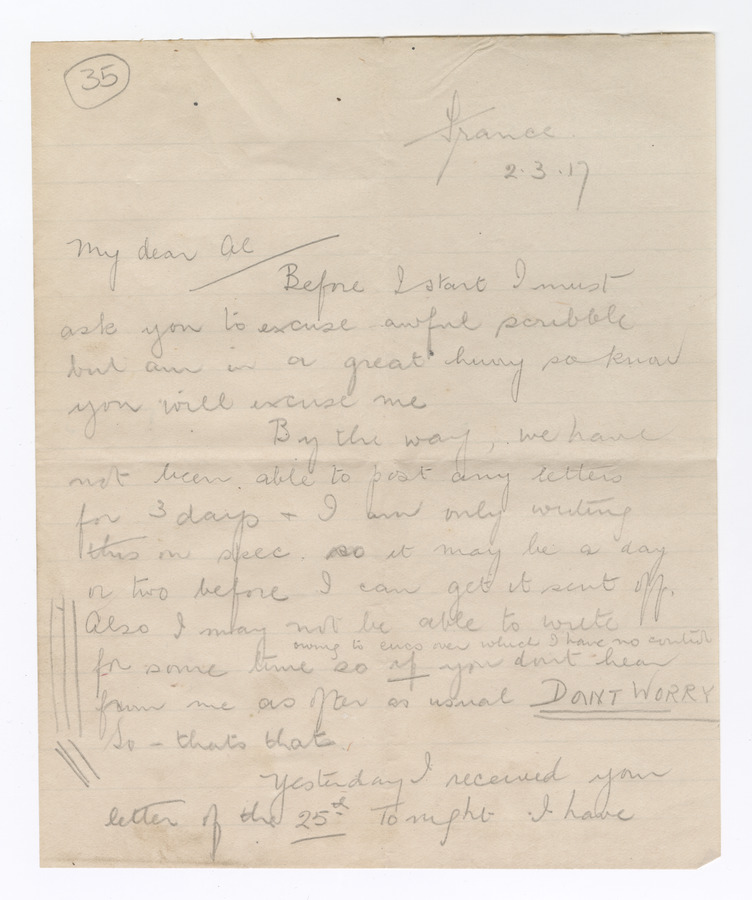 35
France.
2.3.17
My dear Al
Before I start I must
ask you to excuse awful scribble
but am in a great hurry so know
you will excuse me
By the way, we have
not been able to post any letters
for 3 days + I am only writing
this on spec. so it may be a day
or two before I can get it sent off.
Also I may not be able to write
owing to circs over which I have no control
for some time so if you dont hear
from me as often as usual DONT WORRY
So - thats that.
Yesterday I received your
letter of the 25th Tonight I have